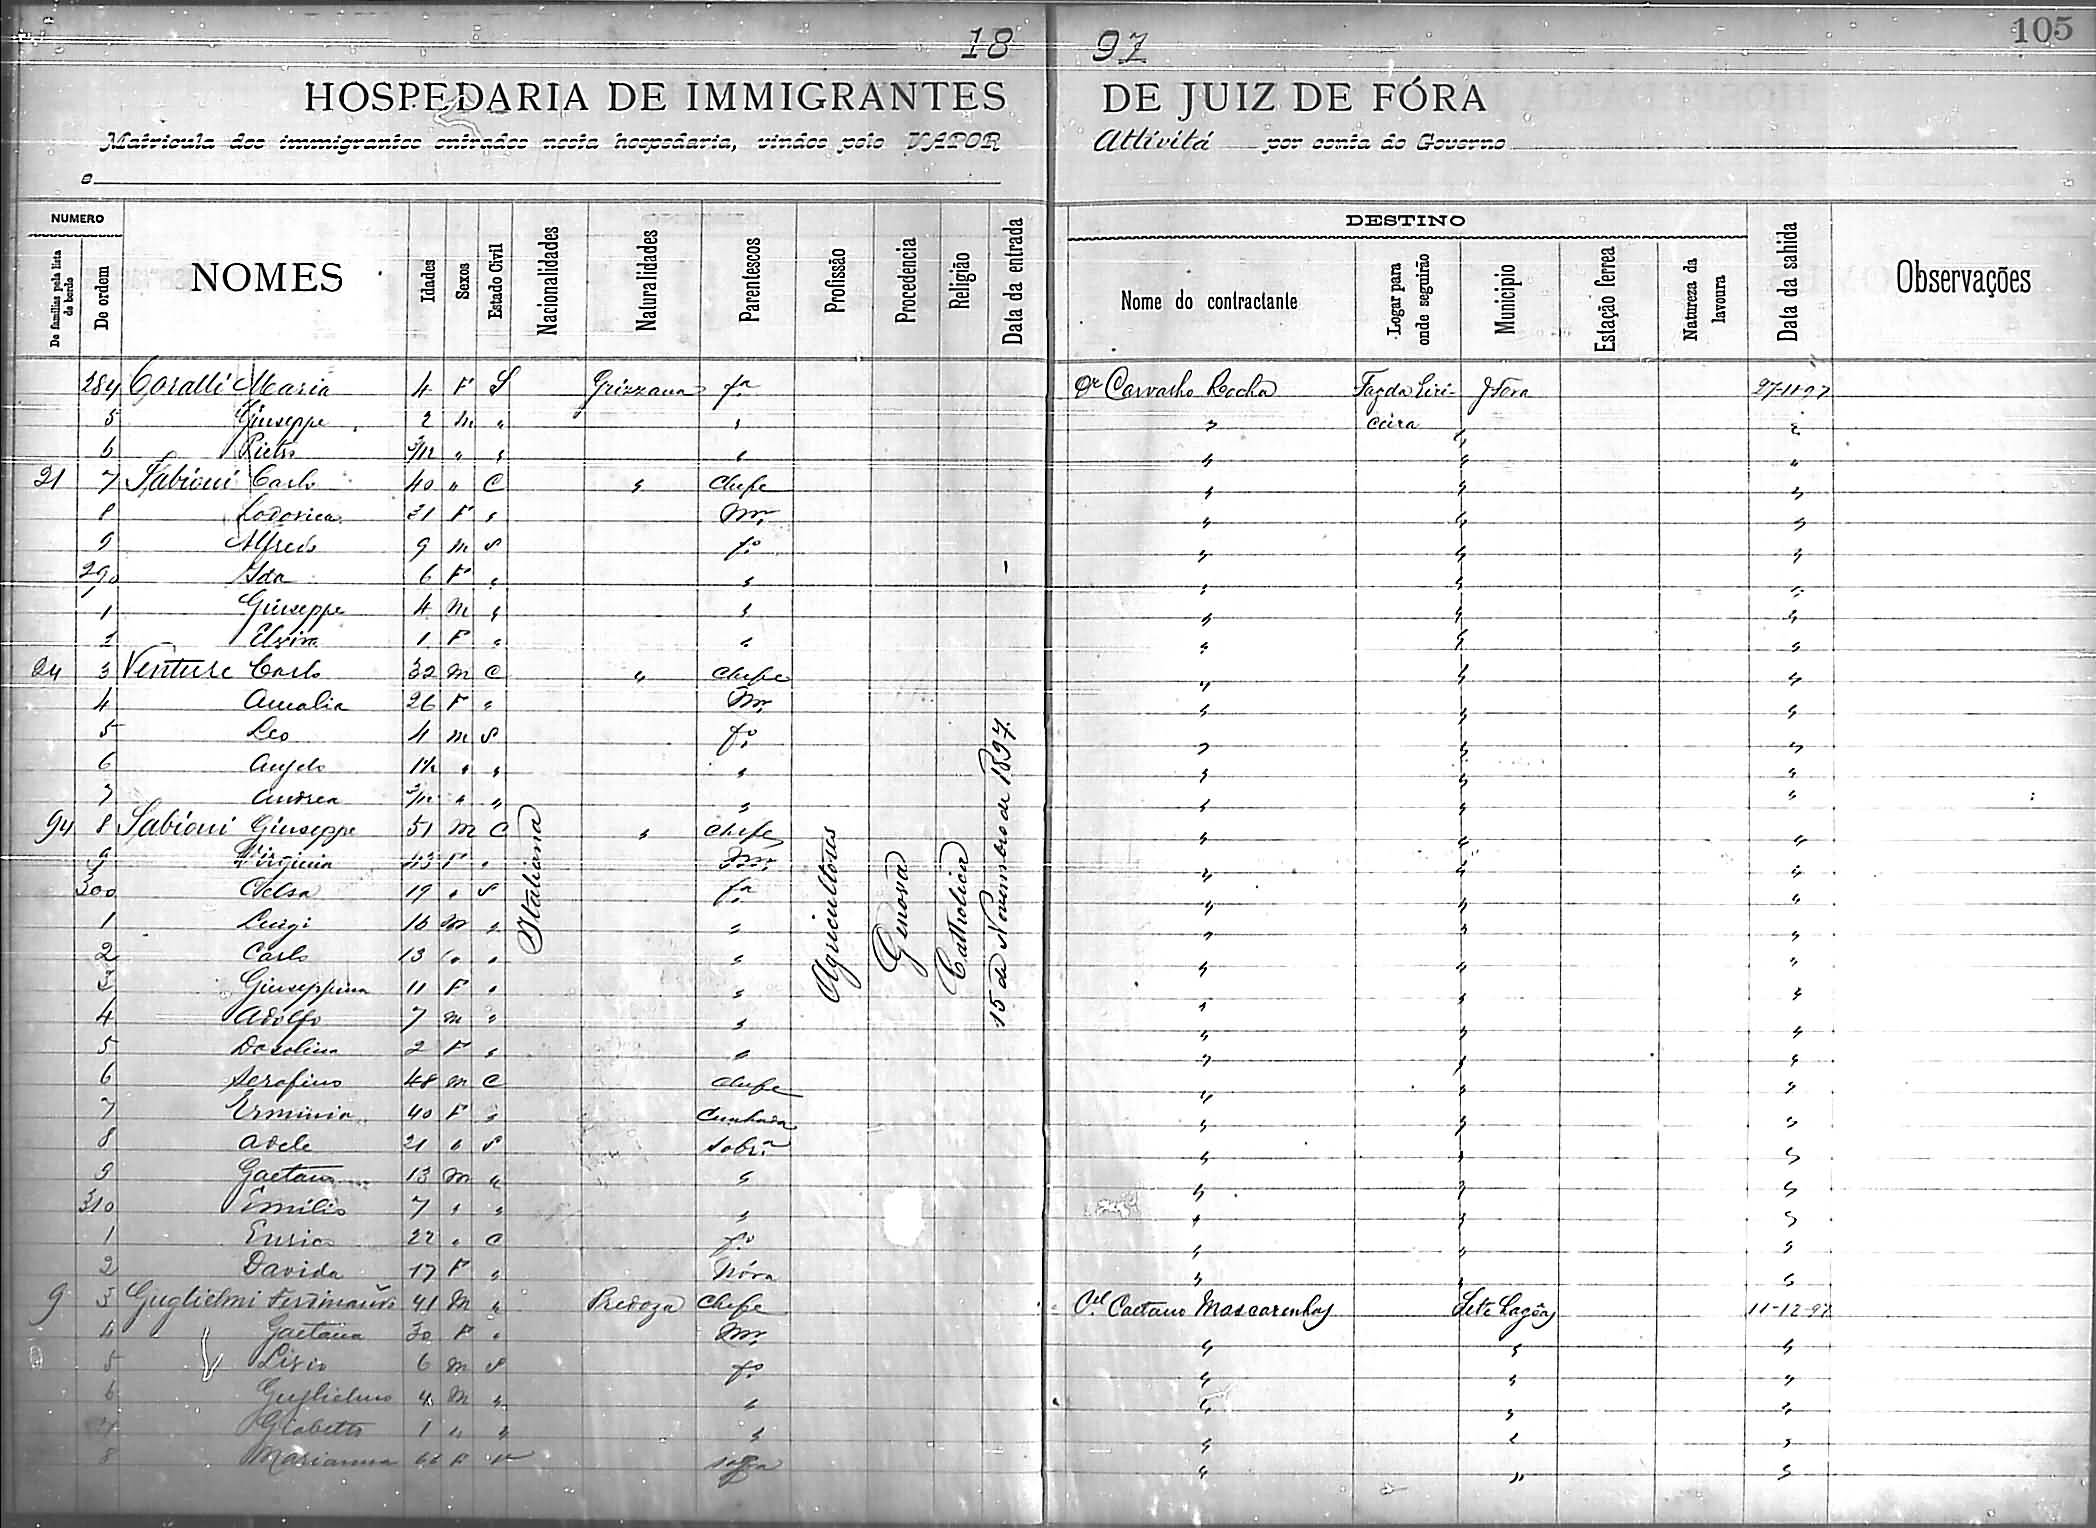 105
18 97
HOSPEDARIA DE IMMIGRANTES DE JUIZ DE FÓRA
Matricula dos immigrantes entrados nesta hospedaria, vindos pelo VAPOR Attivitá por conta do Governo
e
NUMERO
De familias pela lista de bordo
De ordem
NOMES
Idades
Sexos
Estado Civil
Nacionalidades
Naturalidades
Parentescos
Profissão
Procedencia
Religião
Data da entrada
DESTINO
Nome do contractante
Logar para onde seguirão
Municipio
Estação ferrea
Natureza da lavoura
Data da sahida
Observações
284 Coralli Maria 4 F S Grizzana fa. Dr Carvalho Rocha Fazda J Fora 27-11-97
5 Giuseppe 2 m " " " "
6 Pietro 3/12 " " " " " "
21 7 Sabioni Carlo 40 " C " Chefe " " "
8 Lodovica 31 F " Mr. " " "
9 Alfredo 9 m S fo. " " "
290 Ida 6 F " " " " "
1 Giuseppe 4 M " " " " "
2 Elvira 1 F " " " " "
24 3 Venture Carlo 32 M C " Chefe " " "
4 Amalia 26 F " Mr. " " "
5 Leo 4 m S fo. " " "
6 Angelo 1 1/2 " " " " " "
7 Andrea 3/12 " " " " " "
94 8 Sabioni Giuseppe 51 M C " Chefe " " "
9 Virginia 43 F " Mr. " " "
300 Celsa 19 " S fa. " " "
1 Luigi 16 M " " " " "
2 Carlo 13 " " " " " "
3 Giuseppina 11 F " " " " "
4 Adolfo 7 m " " " " "
5 Dosolina 2 F " " " " "
6 Serafino 48 m C Chefe " " "
7 Erminia 40 F " Cunhada " " "
8 Adele 21 " S sobra. " " "
9 Gaetano 13 m " " " " "
310 Emilio 7 " " " " " "
1 Enrico 22 " C fo. " " "
2 Davida 17 F " Nóra " " "
9 3 Guglielmi Ferdinando 41 M " Predoza Chefe Cel. Caetano Mascarenhas Sete Lagôas 11-12-97
4 Gaetana 30 F " Mr. " " "
5 6 m S fo. " " "
6 Guglielmo 4 M " " " " "
7 1 " " " " " "
8 Marianna 66 F V sogra " " "
Italiana
Agricultores
Genova
Catholica
15 de Novembro de 1897.